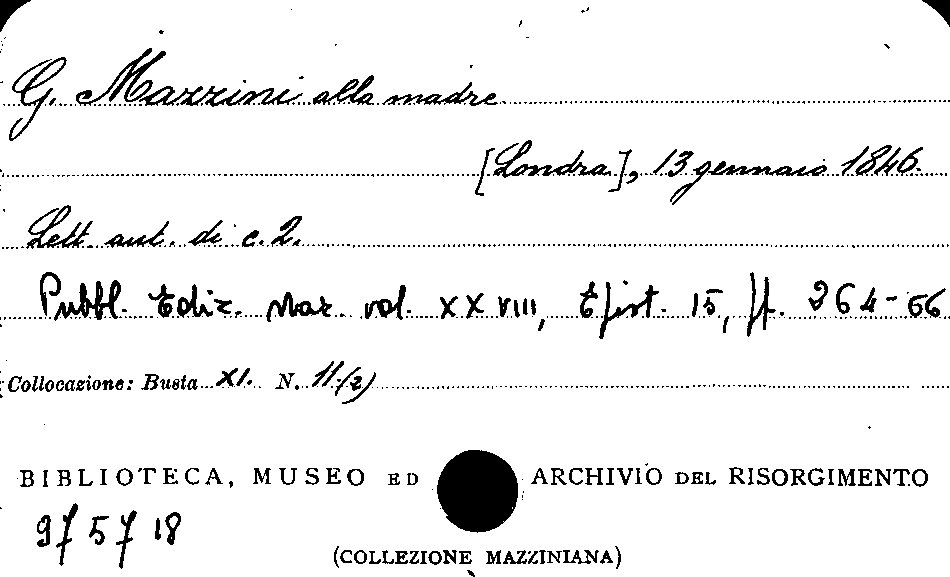 G. Mazzini alla madre
[Londra], 13 gennaio 1846.
Lett. aut. di c. 2.
Pubbl. Ediz. Naz. vol. XXVIII, Epist. 15, pp. 264-66
Collocazione: Busta XI. N. 11(2)
BIBLIOTECA, MUSEO ED ARCHIVIO DEL RISORGIMENTO
(COLLEZIONE MAZZINIANA)